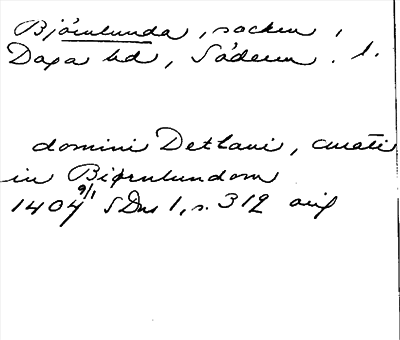 Björnlunda, socken,
Daga hd, Söderm. l.
domini Detlaui, curati
in Biørnlundom
1404 9/1 SDns 1, s. 312 orig